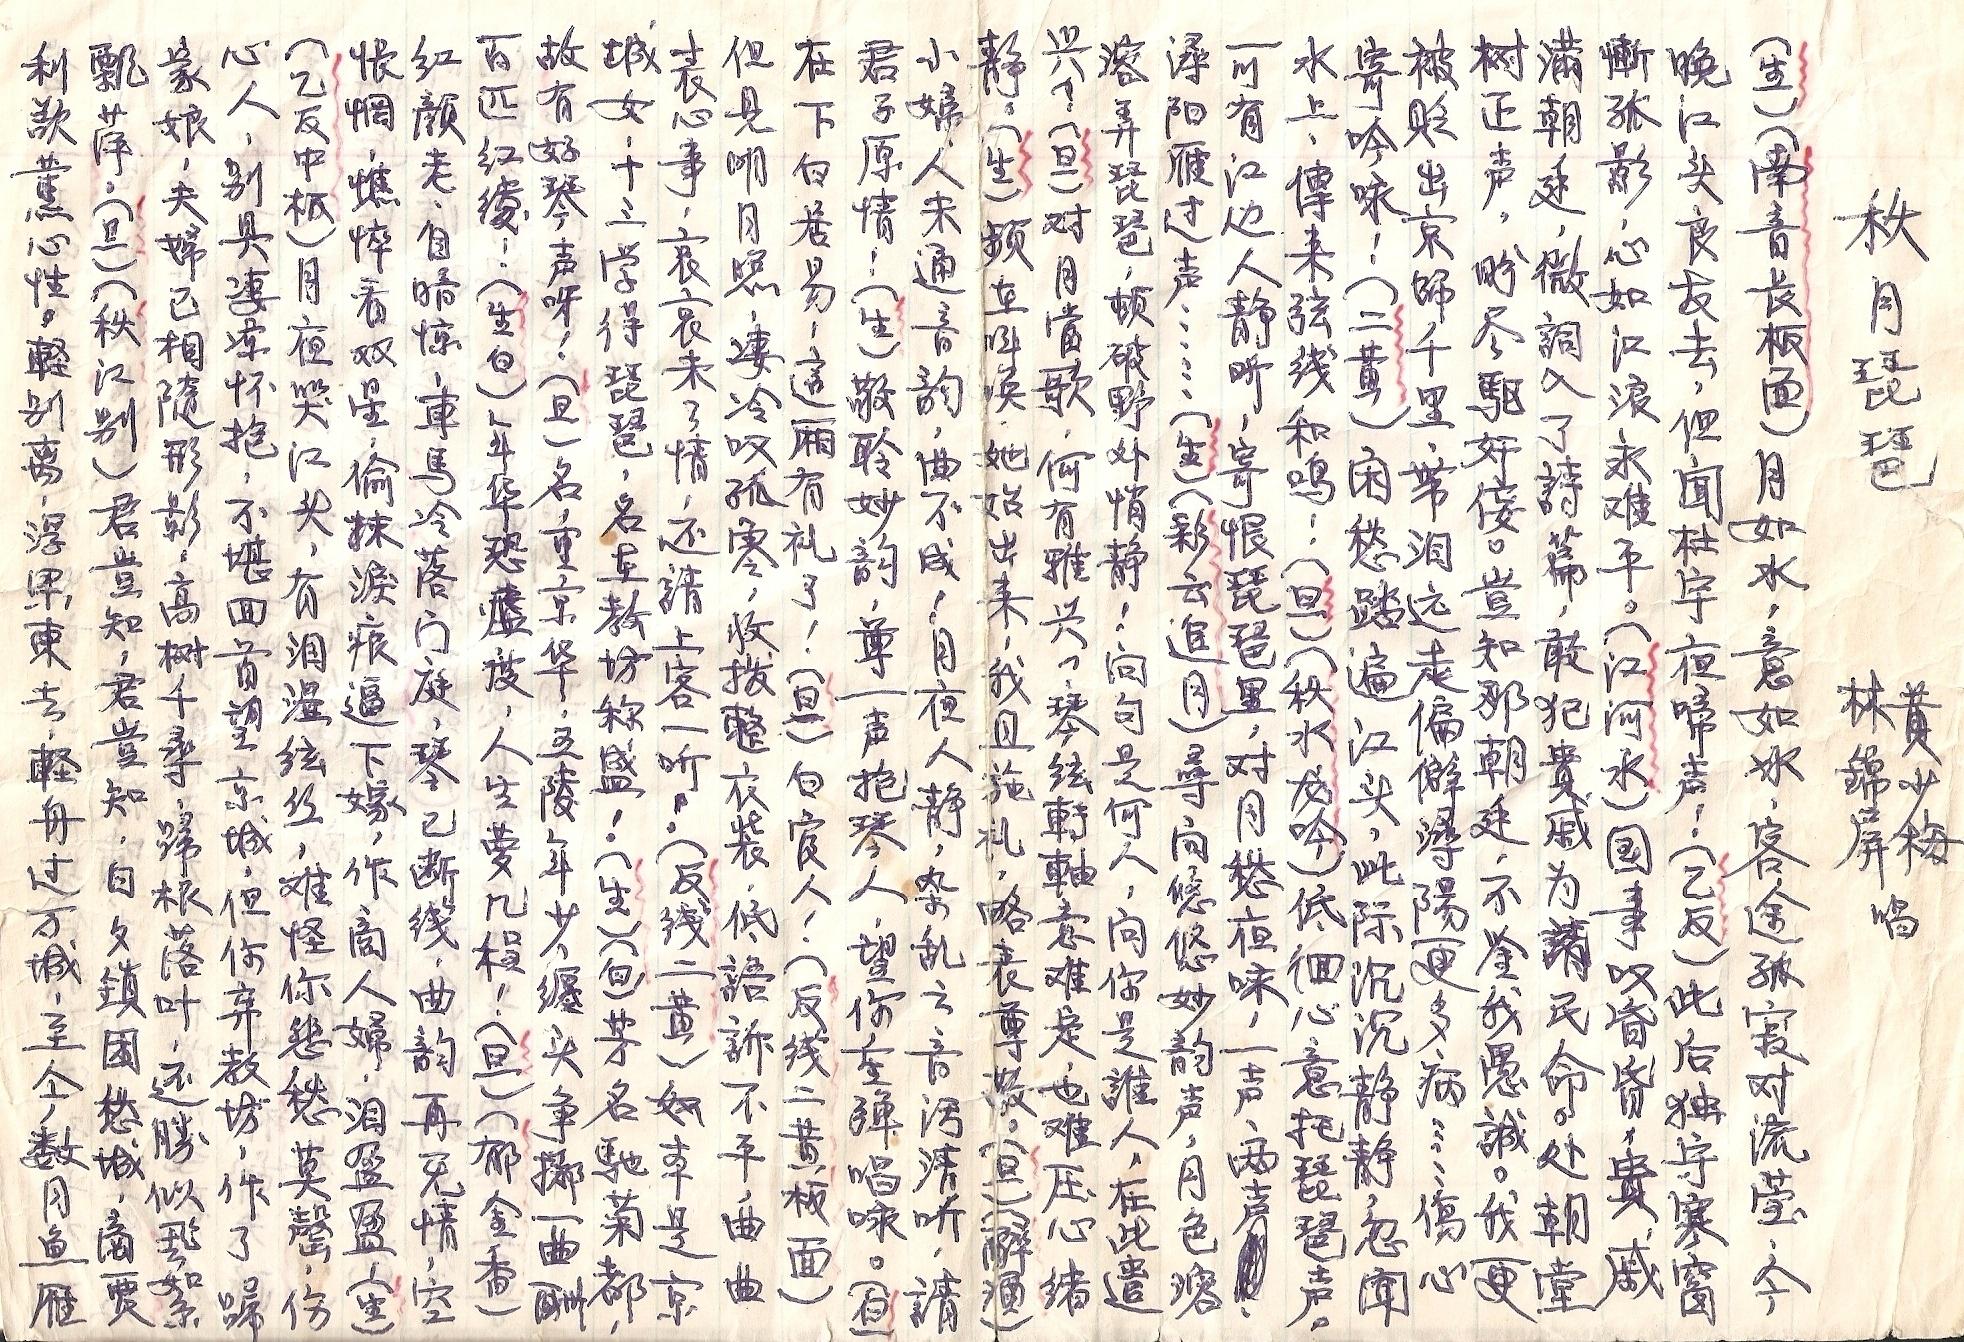 秋月琵琶
黄少梅
林錦屏 唱
(生)(南音长板面)月如水,意如冰,客途孤寂对流萤,今
晚江头良友去,但闻杜宇夜啼声!(乙反)此后独守寒窗
慚孤影,心如江浪永难平。(江河水)国事叹昏昏,貴戚
满朝廷,微詞入了詩篇,敢犯貴戚为請民命。处朝堂
树正声,盼尽驱奸佞。豈知那朝廷,不鉴我愚誠。我更
被贬出京师千里,带泪远走偏僻潯陽更多病……傷心
寄吟咏!(二黄)困愁踏遍江头,此际沉沉静静,忽闻
水上,傳来弦线和鳴!(旦)(秋水龙吟)低徊心意托琵琶声。
可有江边人静听,寄恨琵琶里,对月愁夜咏,一声,两声
潯阳雁过声……(生)(彩云追月)尋向悠悠妙韵声,月色溶
溶弄琵琶,頓破野外悄静!向句是何人,问你是誰人,在此遣
兴?(旦)对月當歌,何有雅兴?琴弦轉軸意难定也难压心緒
静。(生)頻在叫喚她始出来,我且施礼,略表尊敬。(旦)(辭漢)
小婦人未通音韵,曲不成!月夜人静,杂乱之音污清听,請
君子原情!(生)敬聆妙韵,尊一声抱琴人,望你重弹唱咏。(白)
在下白居易!這厢有礼了!(旦)白官人!(反线二黄板面)
但見明月照,凄冷叹孤零,收拨整衣裝,低語訴不平,曲曲
表心事,哀哀未了情,还請上客一听。(反线二黄)奴本是京
城女,十三学得琵琶,名在教坊称盛!(生)(白)芳名馳菊都,
故有好琴声呀!(旦)名重京华,五陵年少,纒头争擲一曲酬
百匹红綾!(生白)年华恐虚度,人生夢几榻!(旦)(郁金香)
红顏老,自暗惊,車馬冷落门庭,琴已断线,曲韵再无情,空
悵惘,憔悴看双星,偷抹淚痕逼下嫁,作商人婦,泪盈盈,(生)
(乙反中板)月夜哭江头,有泪湿弦丝,难怪你悲愁莫罄,伤
心人,别具凄凉怀抱,不堪回首望京城,但你弃教坊,作了歸
家娘,夫婦已相隨形影,高树千尋,歸根落叶,还勝似飛絮
飘萍。(旦)(秋江别)君豈知,君豈知,日夕鎖困愁城,商賈
利欲薰心性,輕别离,浮梁東去,輕舟过万城,至今,数月魚雁